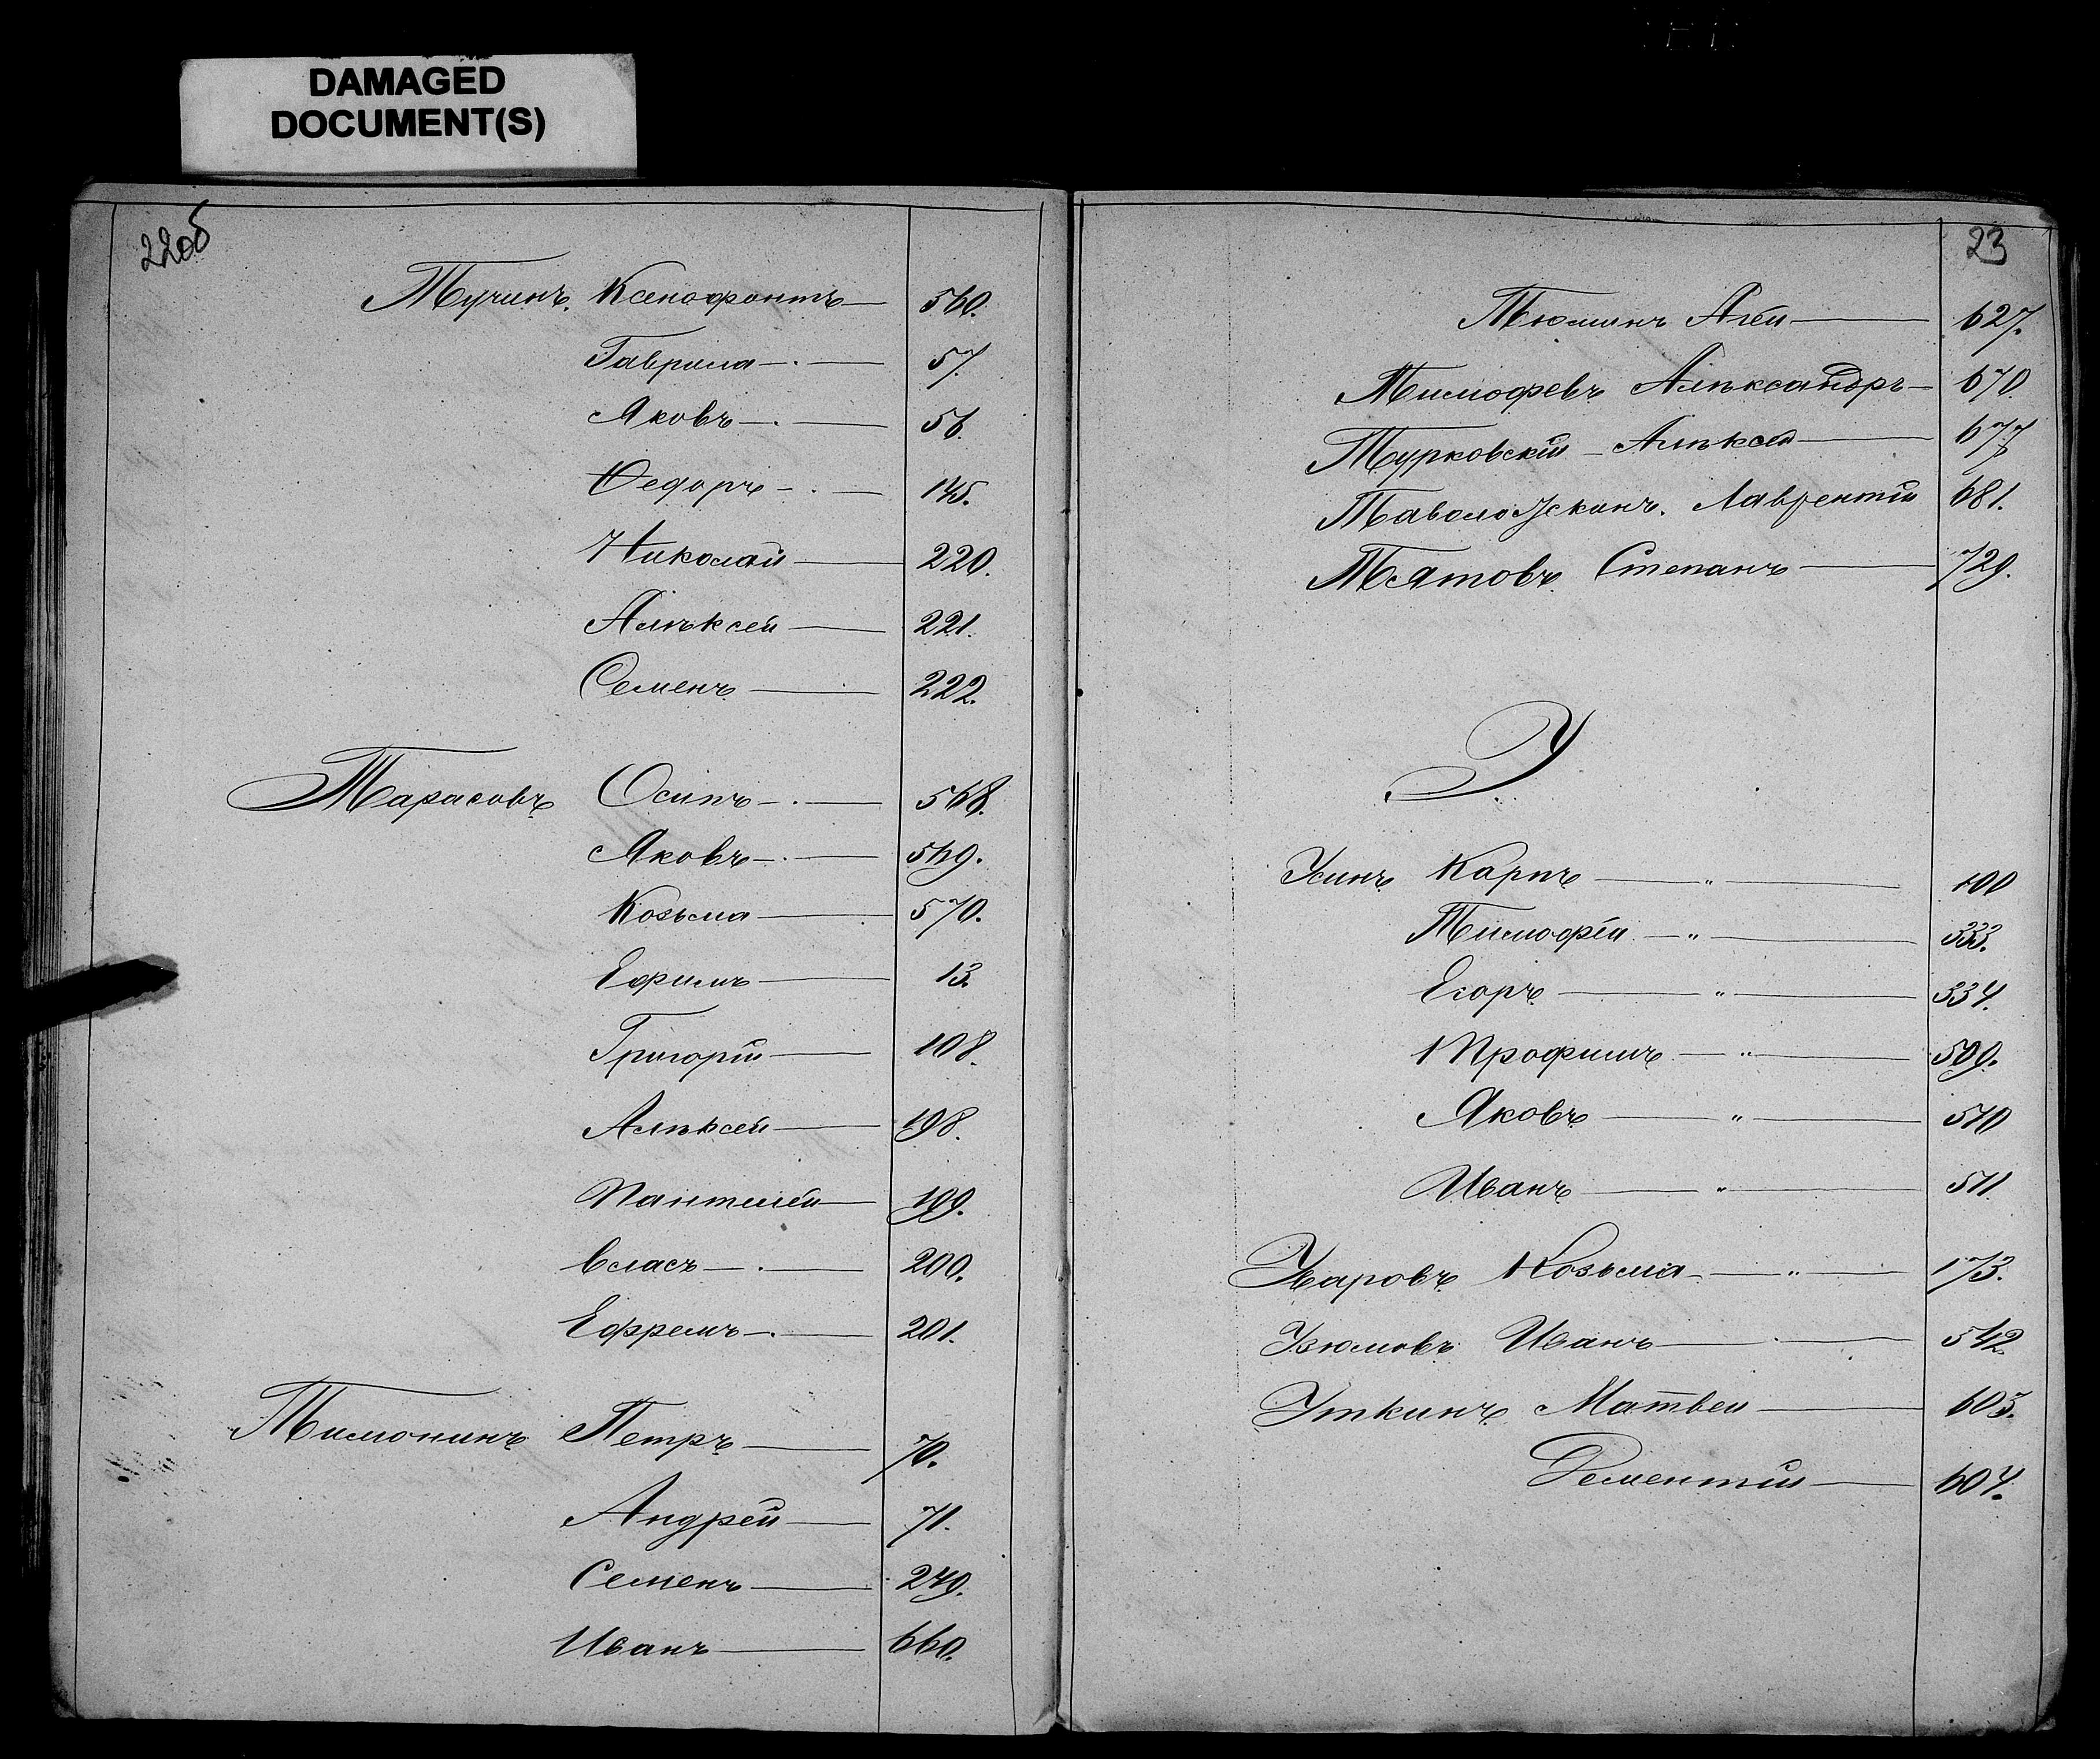 DAMAGED
DOCUMENT(S)
22об
Тучинъ. Ксенофонтъ — 560.
Гаврила — . — 57.
Яковъ — . — 56.
Федоръ — . — 145.
Николай — 220.
Алѣксей — 221.
Семенъ — 222.
Тарасовъ Осипъ — . — 568.
Яковъ — . — 569.
Козьма — 570.
Ефимъ — 13.
Григорій — 108.
Алѣксей — 198.
Пантелей — 199.
Власъ — . — 200.
Ефремъ — . — 201.
Тимонинъ Петръ — 70.
Андрей — 71.
Семенъ — 249.
Иванъ — 660.
23
Тюминъ Агей — 627.
Тимофевъ Алѣксандръ — 670.
Турковскій — Алѣксей — 677
Таволожскинъ. Лаврентій 681.
Тятовъ Степанъ — 729.
У
Усинъ Карпъ — „ — 100
Тимофей — „ — 333.
Егоръ — „ — 334.
Трофимъ — „ — 509.
Яковъ — „ — 510
Иванъ — „ — 511
Уваровъ Козьма — „ — 173.
Узюмовъ Иванъ — 542
Уткинъ Матвей — 603.
Дементій — 604.